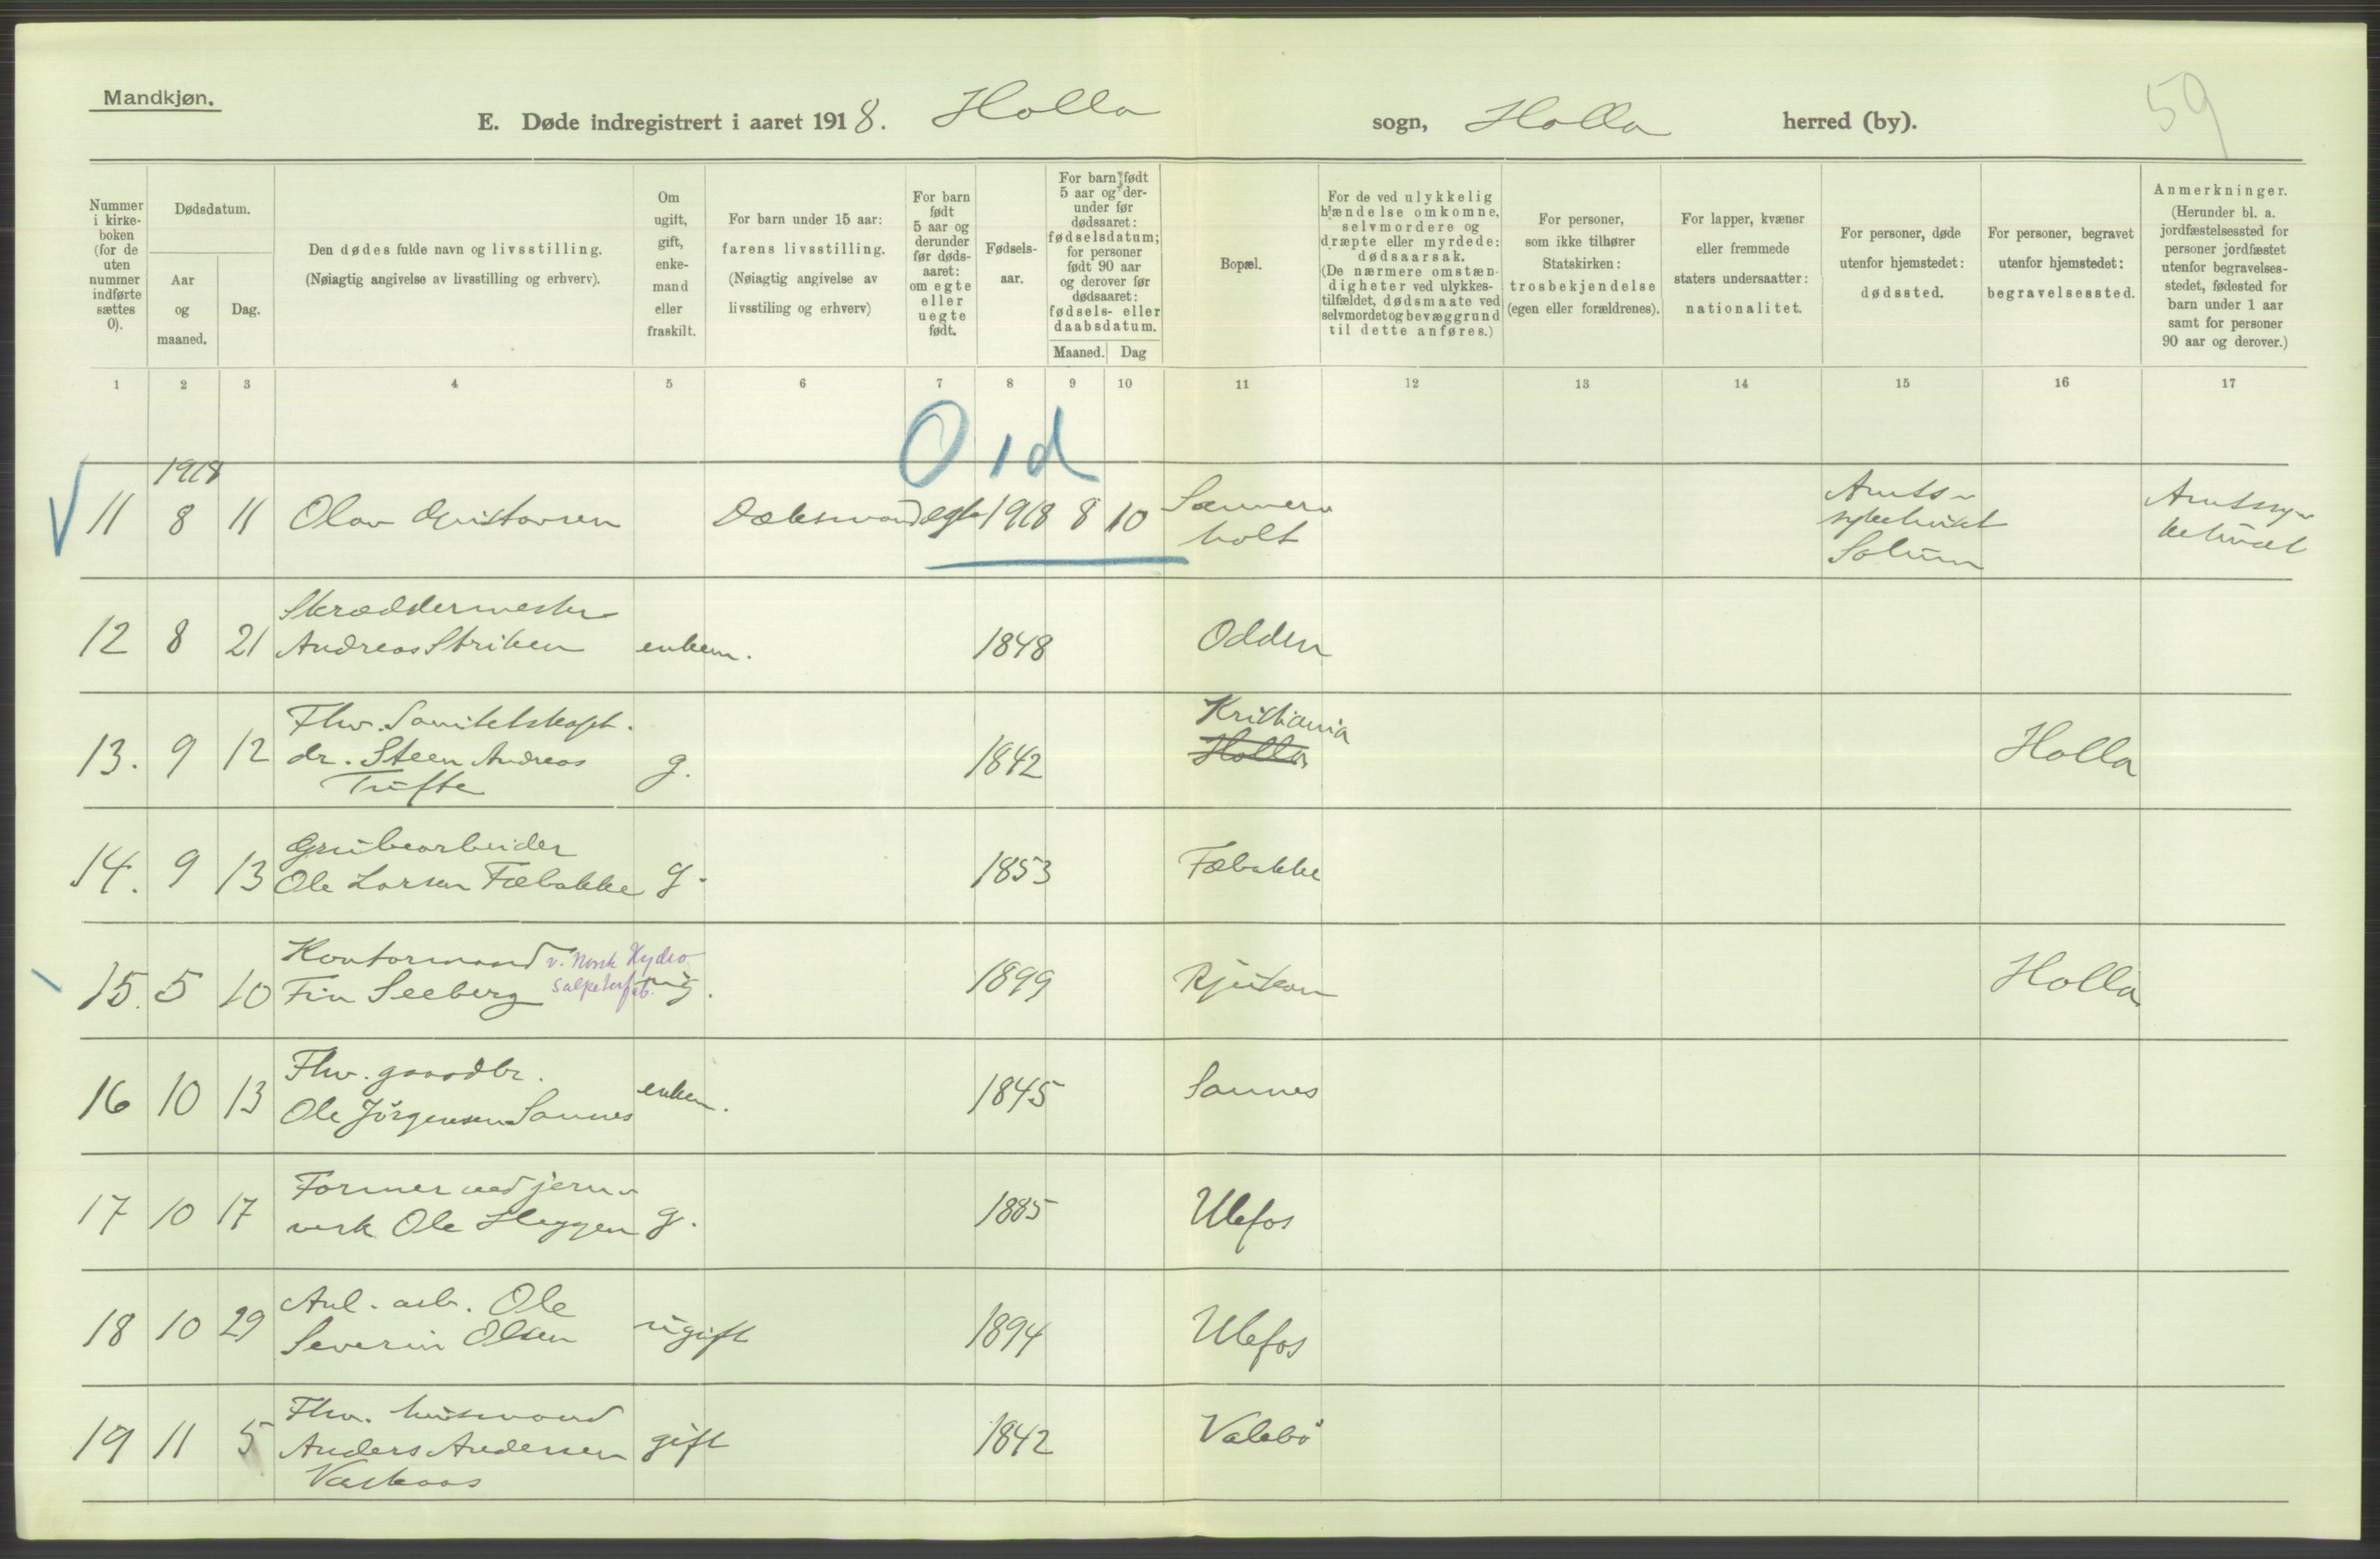 Mandkjøn.
E. Døde indregistrert i aaret 1918. Holla sogn, Holla herred (by).
59
Nummer i kirke-boken (for de uten nummer indførte sættes 0).
Dødsdatum.
Aar og maaned.
Dag.
Den dødes fulde navn og livsstilling.
(Nøiagtig angivelse av livsstilling og erhverv).
Om ugift, gift, enke-mand eller fraskilt.
For barn under 15 aar:
farens livsstilling.
(Nøiagtig angivelse av
livsstiling og erhverv)
For barn født 5 aar og derunder før døds-aaret: om egte eller uegte født.
Fødsels-aar.
For barn født 5 aar og der-under før dødsaaret: fødselsdatum; for personer født 90 aar og derover før dødsaaret: fødsels- eller daabsdatum.
Maaned. Dag
Bopæl.
For de ved ulykkelig hændelse omkomne, selvmordere og dræpte eller myrdede: dødsaarsak.
(De nærmere omstæn-digheter ved ulykkes-tilfældet, dødsmaate ved selvmordet og bevæggrund til dette anføres.)
For personer, som ikke tilhører Statskirken: trosbekjendelse (egen eller forældrenes).
For lapper, kvæner eller fremmede staters undersaatter: nationalitet.
For personer, døde utenfor hjemstedet: dødssted.
For personer, begravet utenfor hjemstedet: begravelsessted.
Anmerkninger.
(Herunder bl. a. jordfæstelsessted for personer jordfæstet utenfor begravelses-stedet, fødested for barn under 1 aar samt for personer 90 aar og derover.)
1 2 3 4 5 6 7 8 9 10 11 12 13 14 15 16 17
0 1 d
1918
11 8 11 Olav Gustavsen egte 1918 8 10
holt
Amts-
sykehuset
Solum
Amtssy-
kehuset
Skræddermester
12 8 21 Andreas Striken enkem. 1848 Odden
Fhv. Sanitetskapt.
13. 9 12 dr. Steen Andreas g. 1842 Kristiania Holla
Holla
Tufte
Grubearbeider
14. 9 13 Ole Larsen Fæbakke g. 1853 Fæbakke
Kontormand v. Norsk Hydro
15. 5 10 Fin Seeberg Salpeterfab. ug. 1899 Rjukan Holla
Fhv. gaardbr.
16 10 13 Ole Jörgensen Sannes enkem. 1845 Sannes
Former ved jern-
17 10 17 verk Ole Heggen g. 1885 Ulefos
Anl. arb. Ole
18 10 29 Severin Olsen ugift 1894 Ulefos
Fhv. husmand
19 11 5 Anders Andersen gift 1842 Valebö